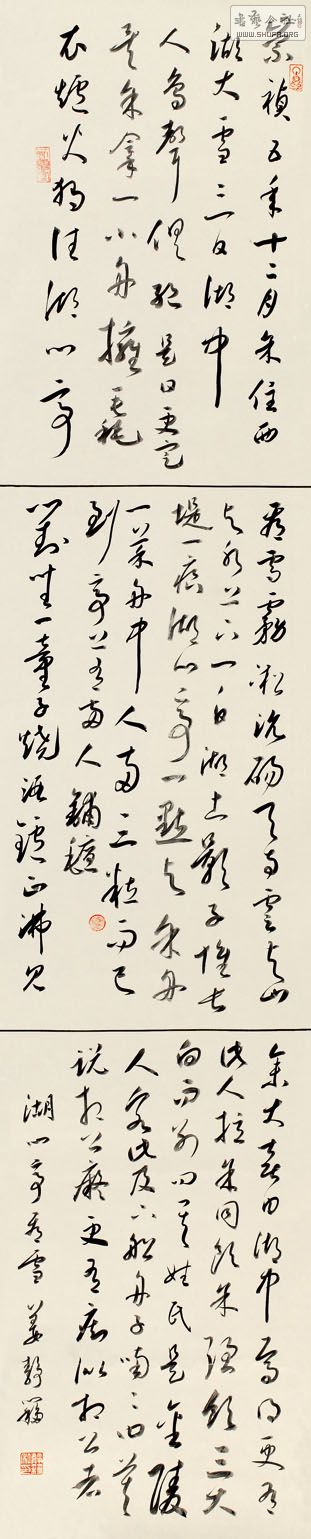 書藝公社
WWW.SHUFA.ORG
崇禎五年十二月余住西
湖大雪三日湖中
人鳥聲俱絕是日更定
矣余拏一小舟擁毳
衣爐火獨往湖心亭
看雪霧凇沆碭天與雲與山
與水上下一白湖上影子惟長
堤一痕湖心亭一點與余舟
一芥舟中人兩三粒而已
到亭上有兩人鋪氈
對坐一童子燒酒鑪正沸見
余大喜曰湖中焉得更有
此人拉余同飲余強飲三大
白而別問其姓氏是金陵
人客此及下船舟子喃〻曰莫
說相公癡更有癡似相公者
湖心亭看雪 姜